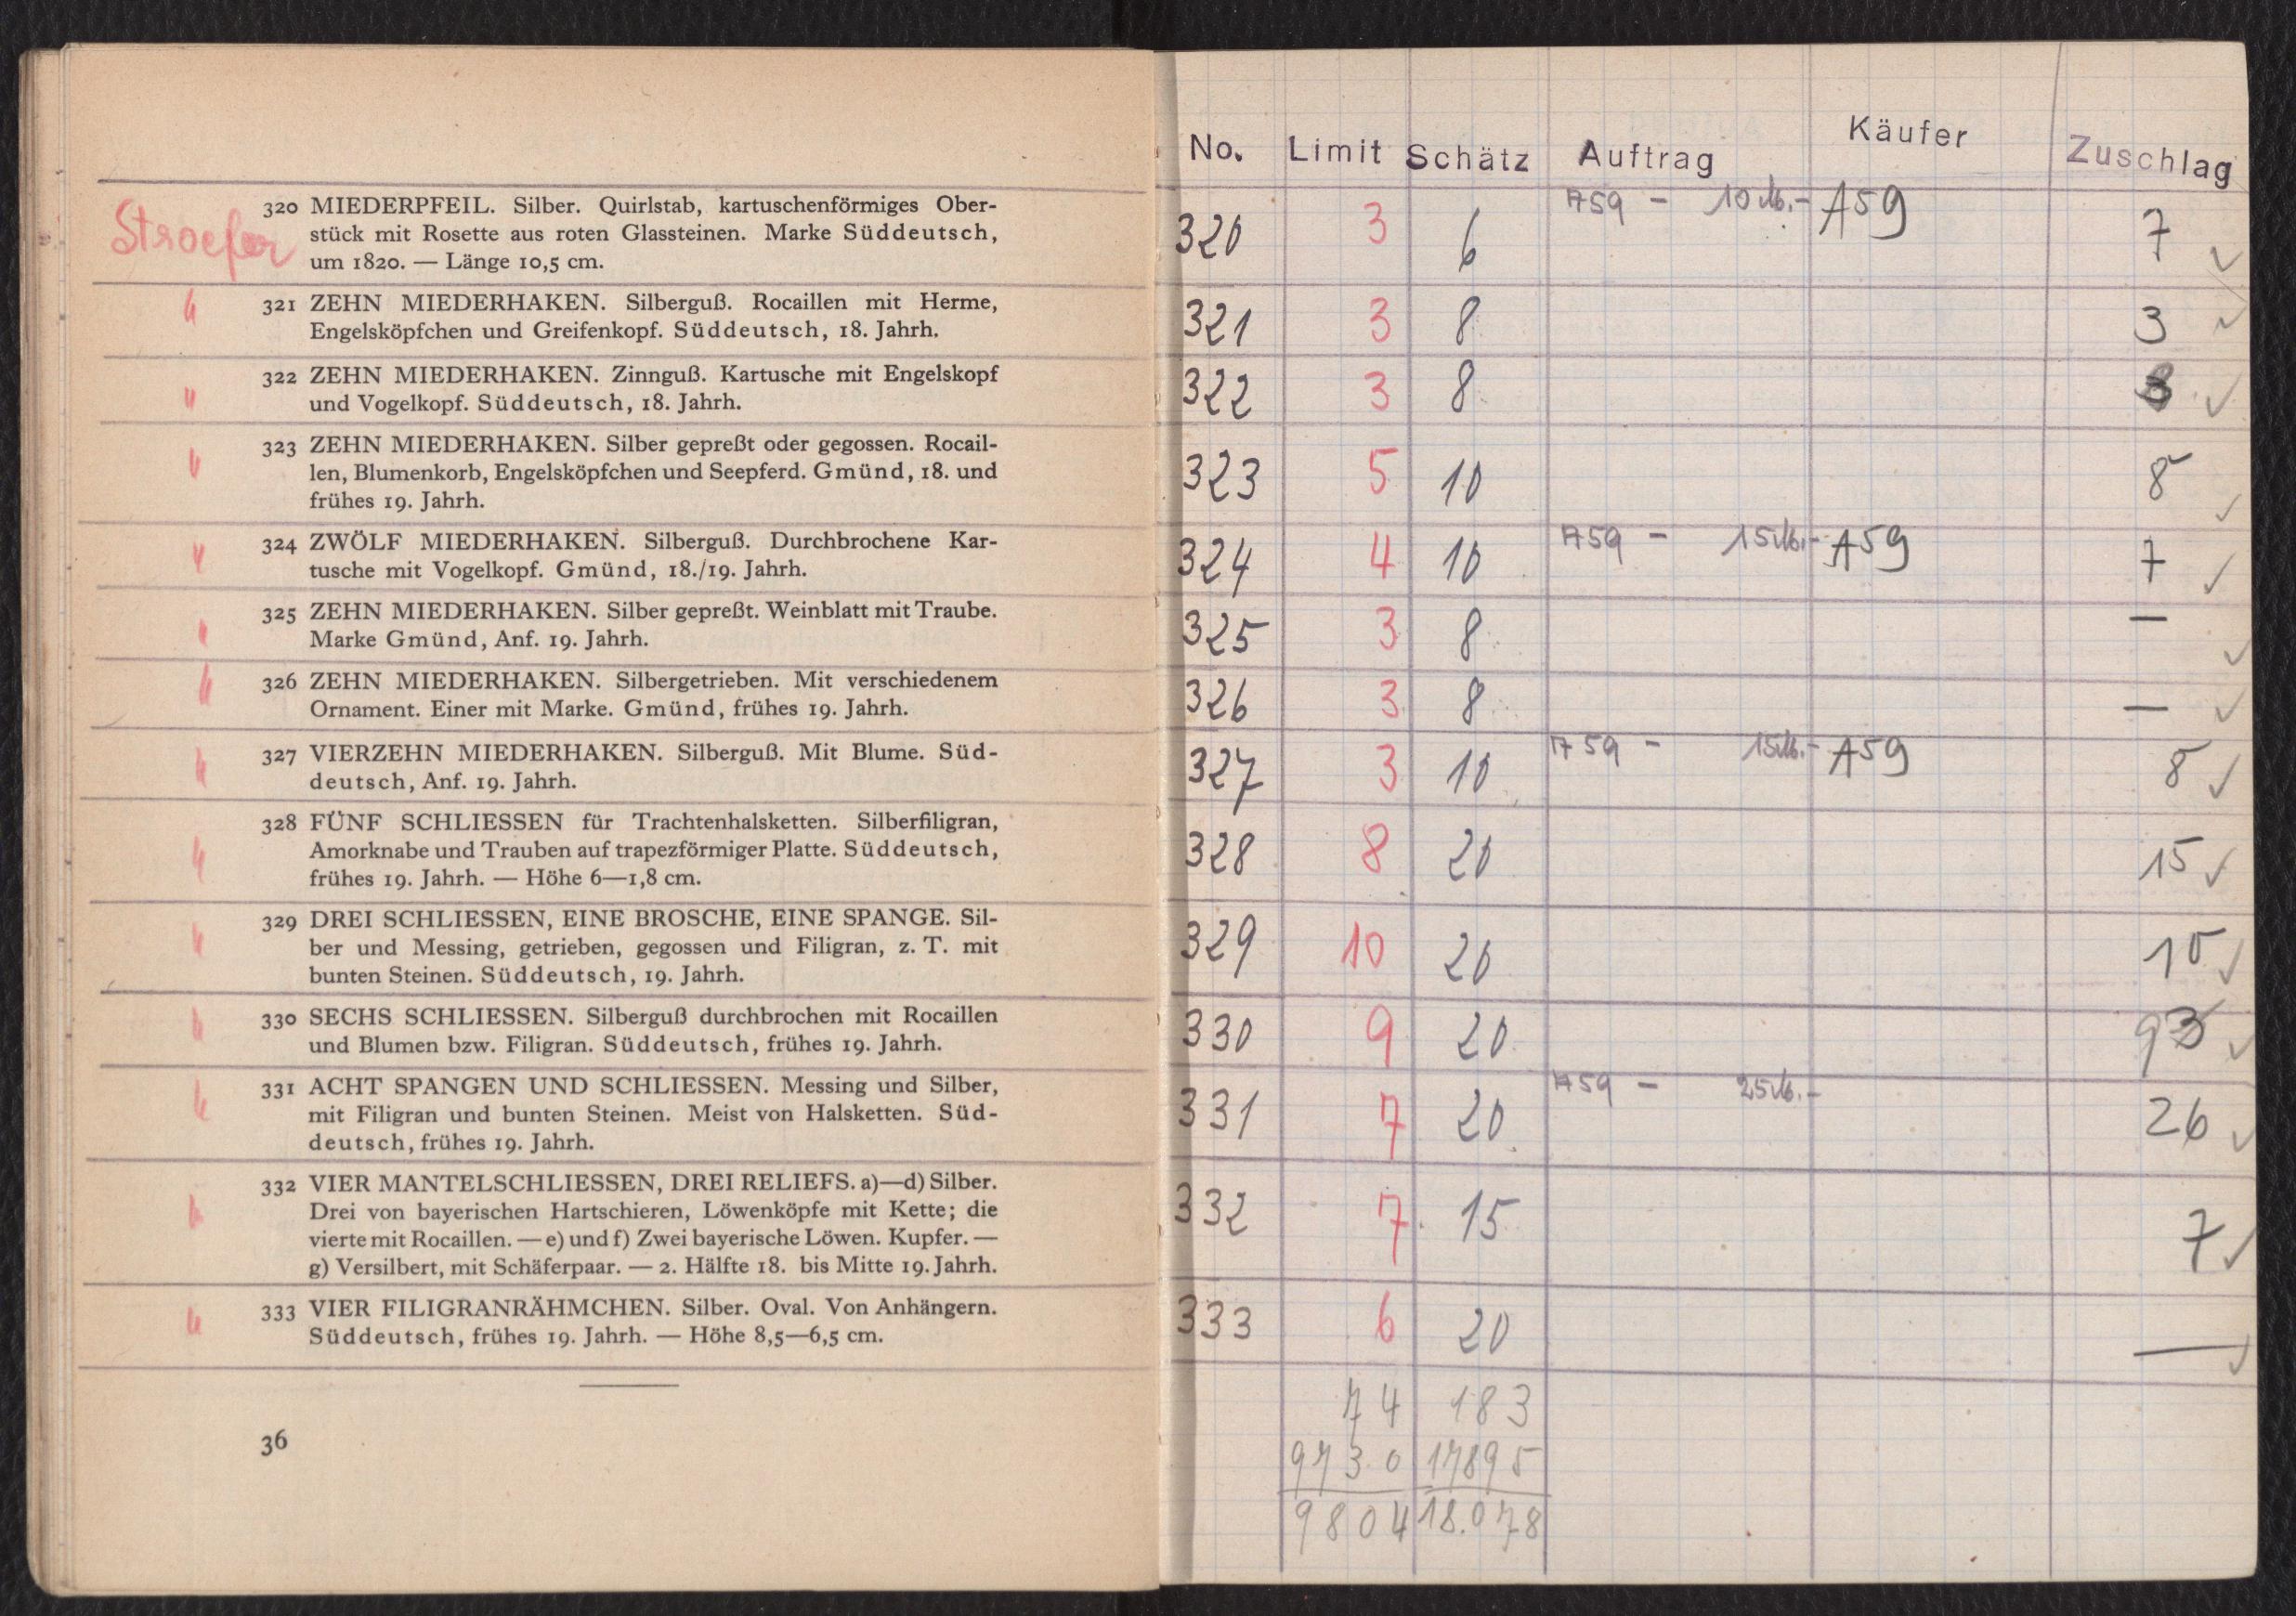 320 MIEDERPFEIL. Silber. Quirlstab, kartuschenförmiges Ober-
Stroefer
stück mit Rosette aus roten Glassteinen. Marke Süddeutsch,
um 1820. — Länge 10,5 cm.
" 321 ZEHN MIEDERHAKEN. Silberguß. Rocaillen mit Herme,
Engelsköpfchen und Greifenkopf. Süddeutsch, 18. Jahrh.
" 322 ZEHN MIEDERHAKEN. Zinnguß. Kartusche mit Engelskopf
und Vogelkopf. Süddeutsch, 18. Jahrh.
" 323 ZEHN MIEDERHAKEN. Silber gepreßt oder gegossen. Rocail-
len, Blumenkorb, Engelsköpfchen und Seepferd. Gmünd, 18. und
frühes 19. Jahrh.
" 324 ZWÖLF MIEDERHAKEN. Silberguß. Durchbrochene Kar-
tusche mit Vogelkopf. Gmünd, 18./19. Jahrh.
" 325 ZEHN MIEDERHAKEN. Silber gepreßt. Weinblatt mit Traube.
Marke Gmünd, Anf. 19. Jahrh.
" 326 ZEHN MIEDERHAKEN. Silbergetrieben. Mit verschiedenem
Ornament. Einer mit Marke. Gmünd, frühes 19. Jahrh.
" 327 VIERZEHN MIEDERHAKEN. Silberguß. Mit Blume. Süd-
deutsch, Anf. 19. Jahrh.
" 328 FÜNF SCHLIESSEN für Trachtenhalsketten. Silberfiligran,
Amorknabe und Trauben auf trapezförmiger Platte. Süddeutsch,
frühes 19. Jahrh. — Höhe 6—1,8 cm.
" 329 DREI SCHLIESSEN, EINE BROSCHE, EINE SPANGE. Sil-
ber und Messing, getrieben, gegossen und Filigran, z. T. mit
bunten Steinen. Süddeutsch, 19. Jahrh.
" 330 SECHS SCHLIESSEN. Silberguß durchbrochen mit Rocaillen
und Blumen bzw. Filigran. Süddeutsch, frühes 19. Jahrh.
" 331 ACHT SPANGEN UND SCHLIESSEN. Messing und Silber,
mit Filigran und bunten Steinen. Meist von Halsketten. Süd-
deutsch, frühes 19. Jahrh.
" 332 VIER MANTELSCHLIESSEN, DREI RELIEFS. a)—d) Silber.
Drei von bayerischen Hartschieren, Löwenköpfe mit Kette; die
vierte mit Rocaillen. — e) und f) Zwei bayerische Löwen. Kupfer. —
g) Versilbert, mit Schäferpaar. — 2. Hälfte 18. bis Mitte 19. Jahrh.
" 333 VIER FILIGRANRÄHMCHEN. Silber. Oval. Von Anhängern.
Süddeutsch, frühes 19. Jahrh. — Höhe 8,5—6,5 cm.
36
No. Limit Schätz Auftrag Käufer Zuschlag
320 3 6 A59 – 10 M.– A59 7 ✓
321 3 8 3 ✓
322 3 8 ✓
323 5 10 8 ✓
324 4 10 A59 – 15 M.– A59 7 ✓
325 3 8 — ✓
326 3 8 — ✓
327 3 10 A59 – 15 M.– A59 8 ✓
328 8 20 15 ✓
329 10 20 10 ✓
330 9 20 9 ✓
331 7 20 A59 – 25 M.– 26 ✓
332 7 15 7 ✓
333 6 20 — ✓
74 183
9730 17895
9804 18.078